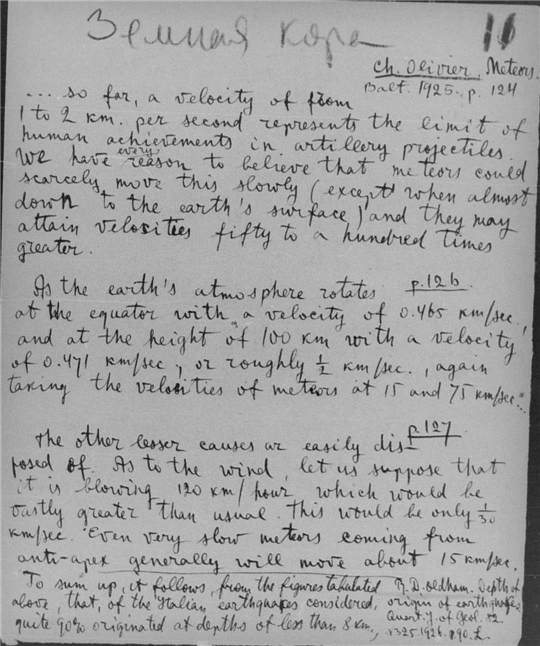 Земная кора 11
Ch. Olivier. Meteors.
Balt. 1925. p. 124
... so far, a velocity of from
1 to 2 km. per second represents the limit of
human achievements in artillery projectiles.
We have every reason to believe that meteors could
scarcely move this slowly (except when almost
down to the earth's surface) and they may
attain velocities fifty to a hundred times
greater.
p. 126.
As the earth's atmosphere rotates
at the equator with a velocity of 0.465 km/sec.,
and at the height of 100 km with a velocity
of 0.471 km/sec, or roughly ½ km/sec., again
taking the velocities of meteors at 15 and 75 km/sec...
p. 127
The other lesser causes ar easily dis-
posed of. As to the wind, let us suppose that
it is blowing 120 km/hour which would be
vastly greater than usual. This would be only 1/30
km/sec. Even very slow meteors coming from
anti-apex generally will move about 15 km/sec.
To sum up, it follows, from the figures tabulated
above, that, of the Italian earthquakes considered,
quite 90% originated at depths of less than 8 km.,
R. D. Oldham. Depth of
origin of earthquakes.
Quart. J. of Geol.
1926.